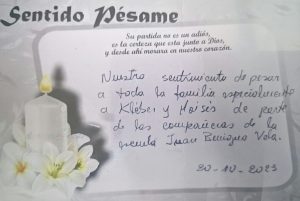 Sentido Pésame
Su partida no es un adiós,
es la certeza que esta junto a Dios,
y desde ahí morara en nuestro corazón.
Nuestro sentimiento de pesar
a toda la familia especialmente
a Kléber y Moisés de parte
de los compañeros de la
escuela Juan Benigno Vela.
20-10-2023